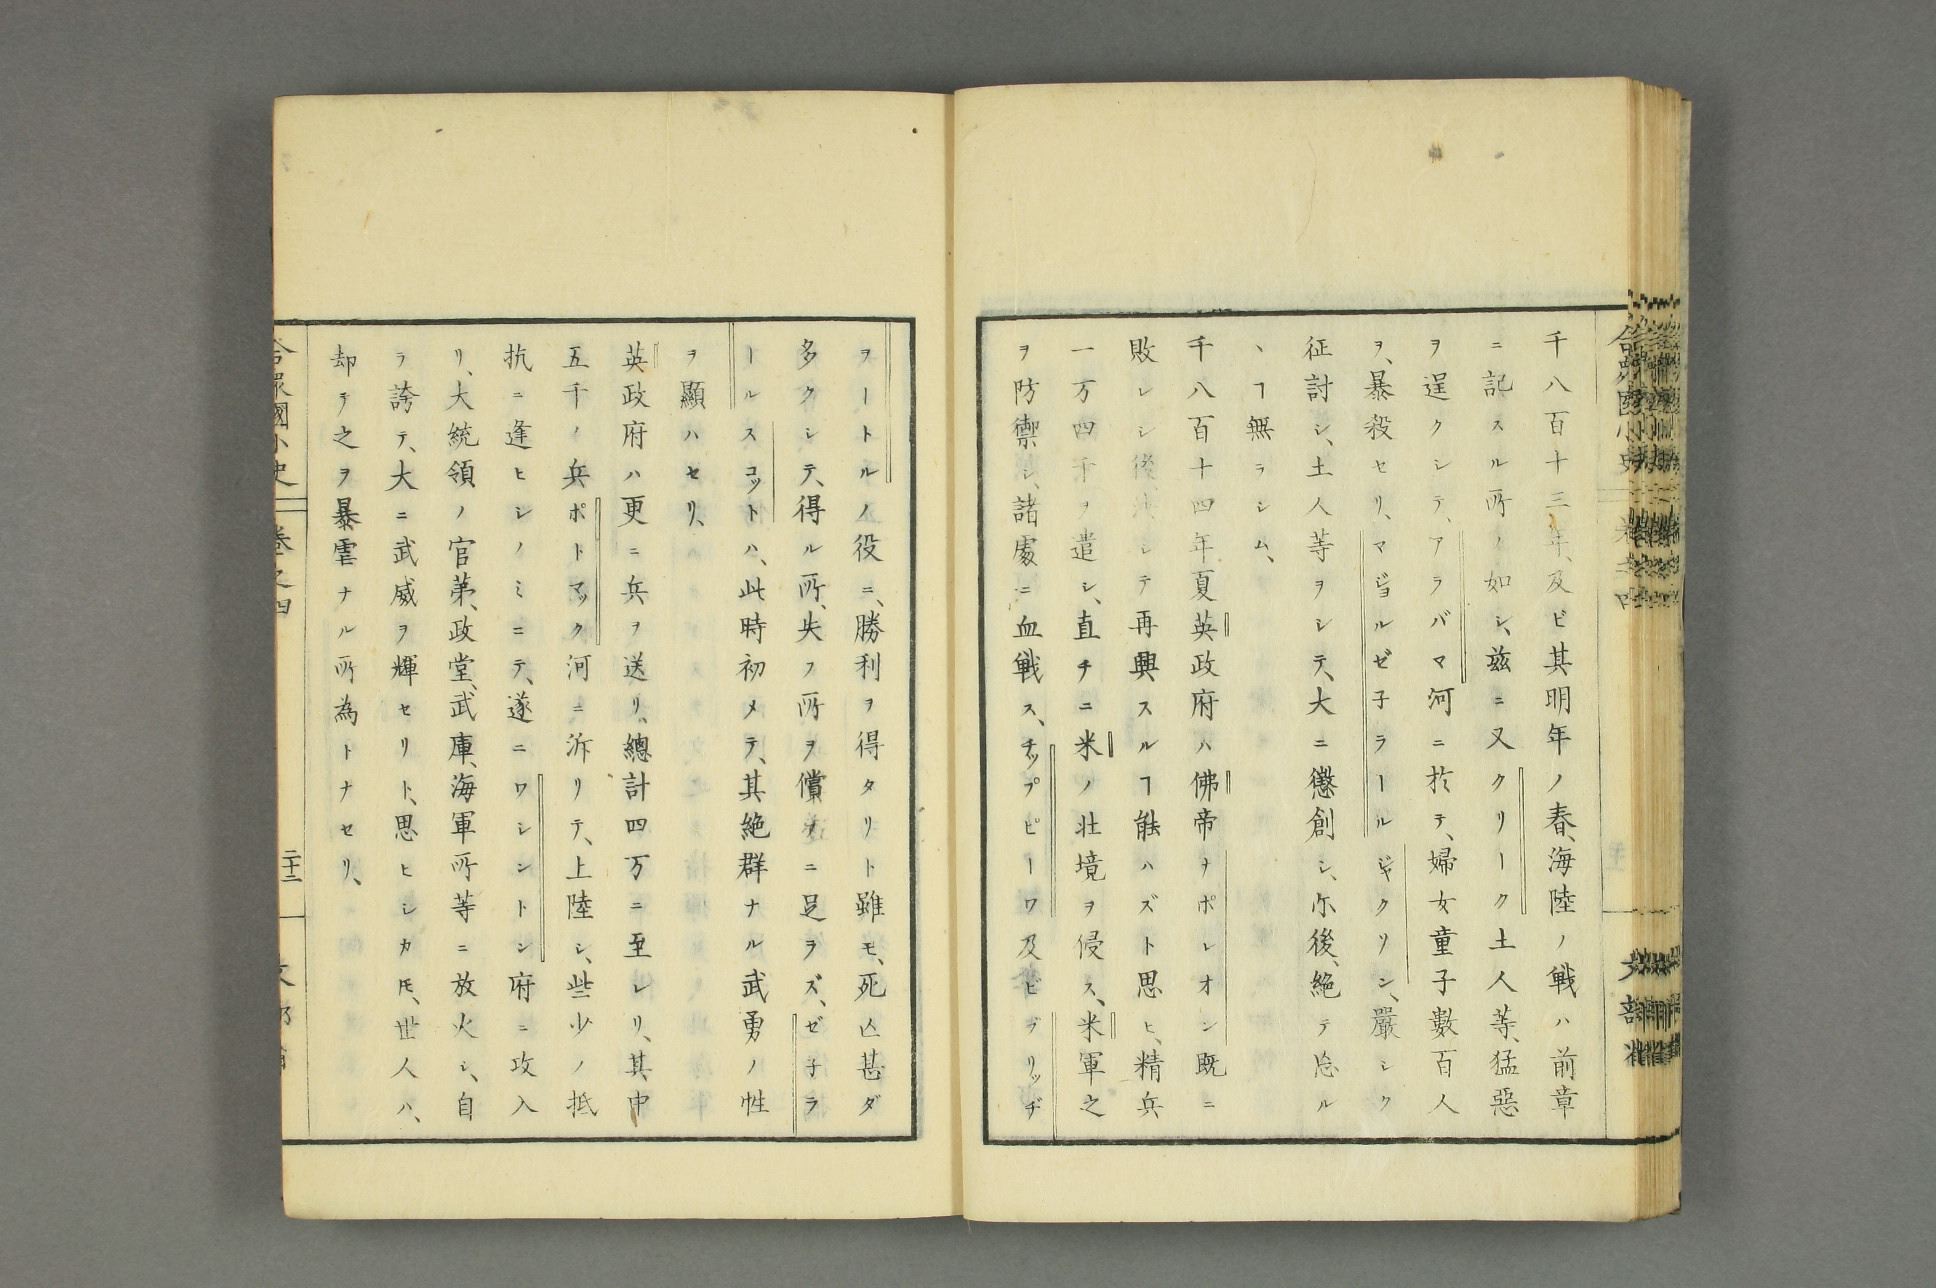 千八百十三年、及ビ其明年ノ春、海陸ノ戦ハ前章
ニ記スル所ノ如シ、茲ニ又クリーク土人等、猛惡
ヲ逞クシテ、アラバマ河ニ於テ、婦女童子數百人
ヲ、暴殺セリ、マジョルゼ子ラールジャクソン、嚴シク
征討シ、土人等ヲシテ、大ニ懲創シ、尓後、絶テ怠ル
丶ヿ無ラシム、
千八百十四年夏英政府ハ佛帝ナポレオン既ニ
敗レシ後決シテ再興スルヿ能ハズト思ヒ、精兵
一万四千ヲ遣シ、直チニ米ノ壮境ヲ侵ス、米軍之
ヲ防禦シ、諸處ニ血戦ス、チップピーワ及ビブリッヂ
ヲートルノ役ニ、勝利ヲ得タリト雖モ、死亡甚ダ
多クシテ、得ル所、失フ所ヲ償フニ足ラズ、ゼ子ラ
ールスコットハ、此時初メテ、其絶群ナル武勇ノ性
ヲ顯ハセリ、
英政府ハ更ニ兵ヲ送リ、總計四万ニ至レリ、其中
五千ノ兵ポトマック河ニ泝リテ、上陸シ、些少ノ抵
抗ニ逢ヒシノミニテ、遂ニワシントン府ニ攻入
リ、大統領ノ官第、政堂、武庫、海軍所等ニ放火シ、自
ラ誇テ、大ニ武威ヲ輝セリト、思ヒシカ𪜈、世人ハ、
却テ之ヲ暴虐ナル所為トナセリ、
合衆國小史 巻之四 二十二